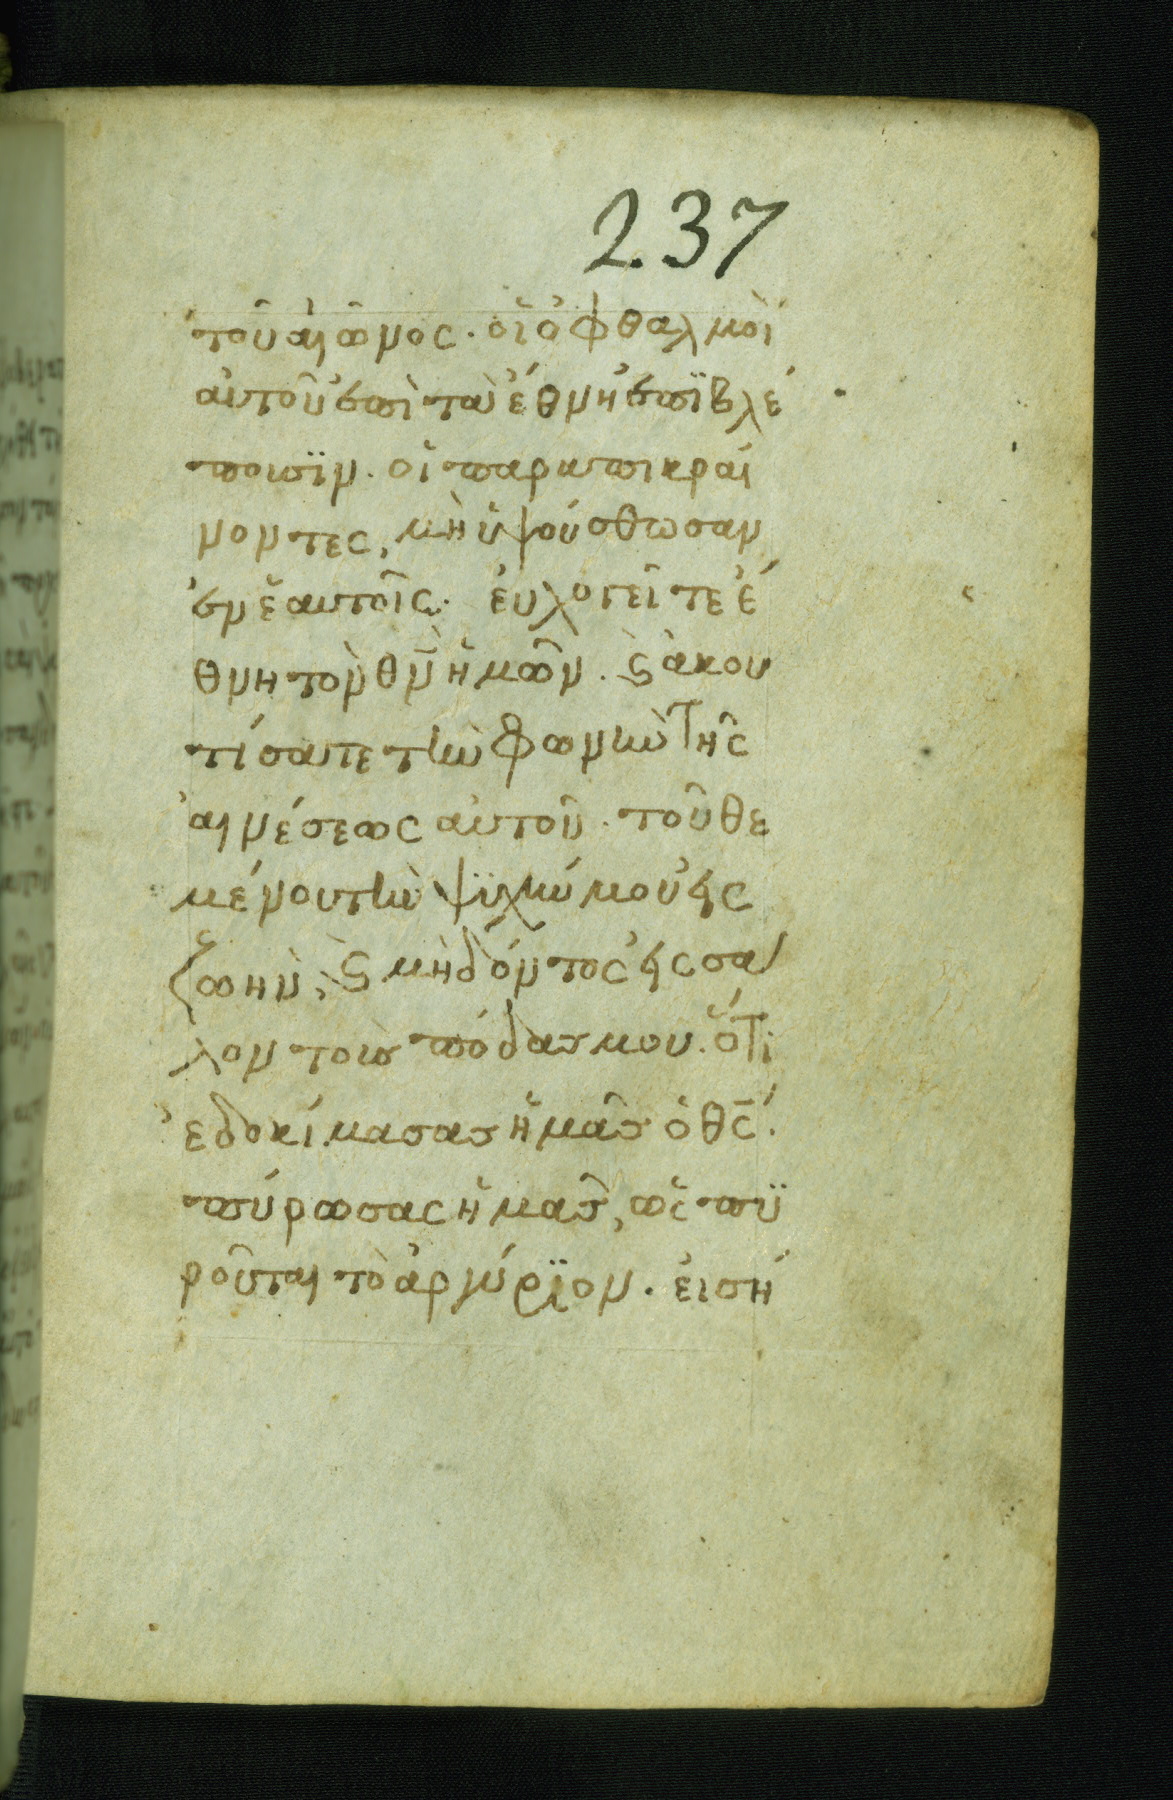 237
τοῦ αἰῶνος· οἱ ὀφθαλμοὶ
αὐτοῦ ἐπὶ τὰ ἔθνη ἐπϊβλέ
πουσϊν· οἱ παραπικραί
νοντες, μὴ ὑψούσθωσαν
ἐν ἑαυτοῖς· ἐυλογεῖτε ἔ
θνη τὸν θν̅ ἡμῶν· ϛ̀ ἀκου
τίσατε τὴν φωνὴν τῆς
αἰνέσεως αὐτοῦ· τοῦ θε
μένου τὴν ψϋχήν μου εἰς
ζωήν, ϛ̀ μὴ δόντος εἰς σά
λον τοὺς πόδας μου· ὅτι
ἐδοκίμασας ἡμᾶς ὁ θς̅·
πύρωσας ἡμᾶς, ὡς πϋ
ροῦται τὸ ἀργύρϊον· ἐισή